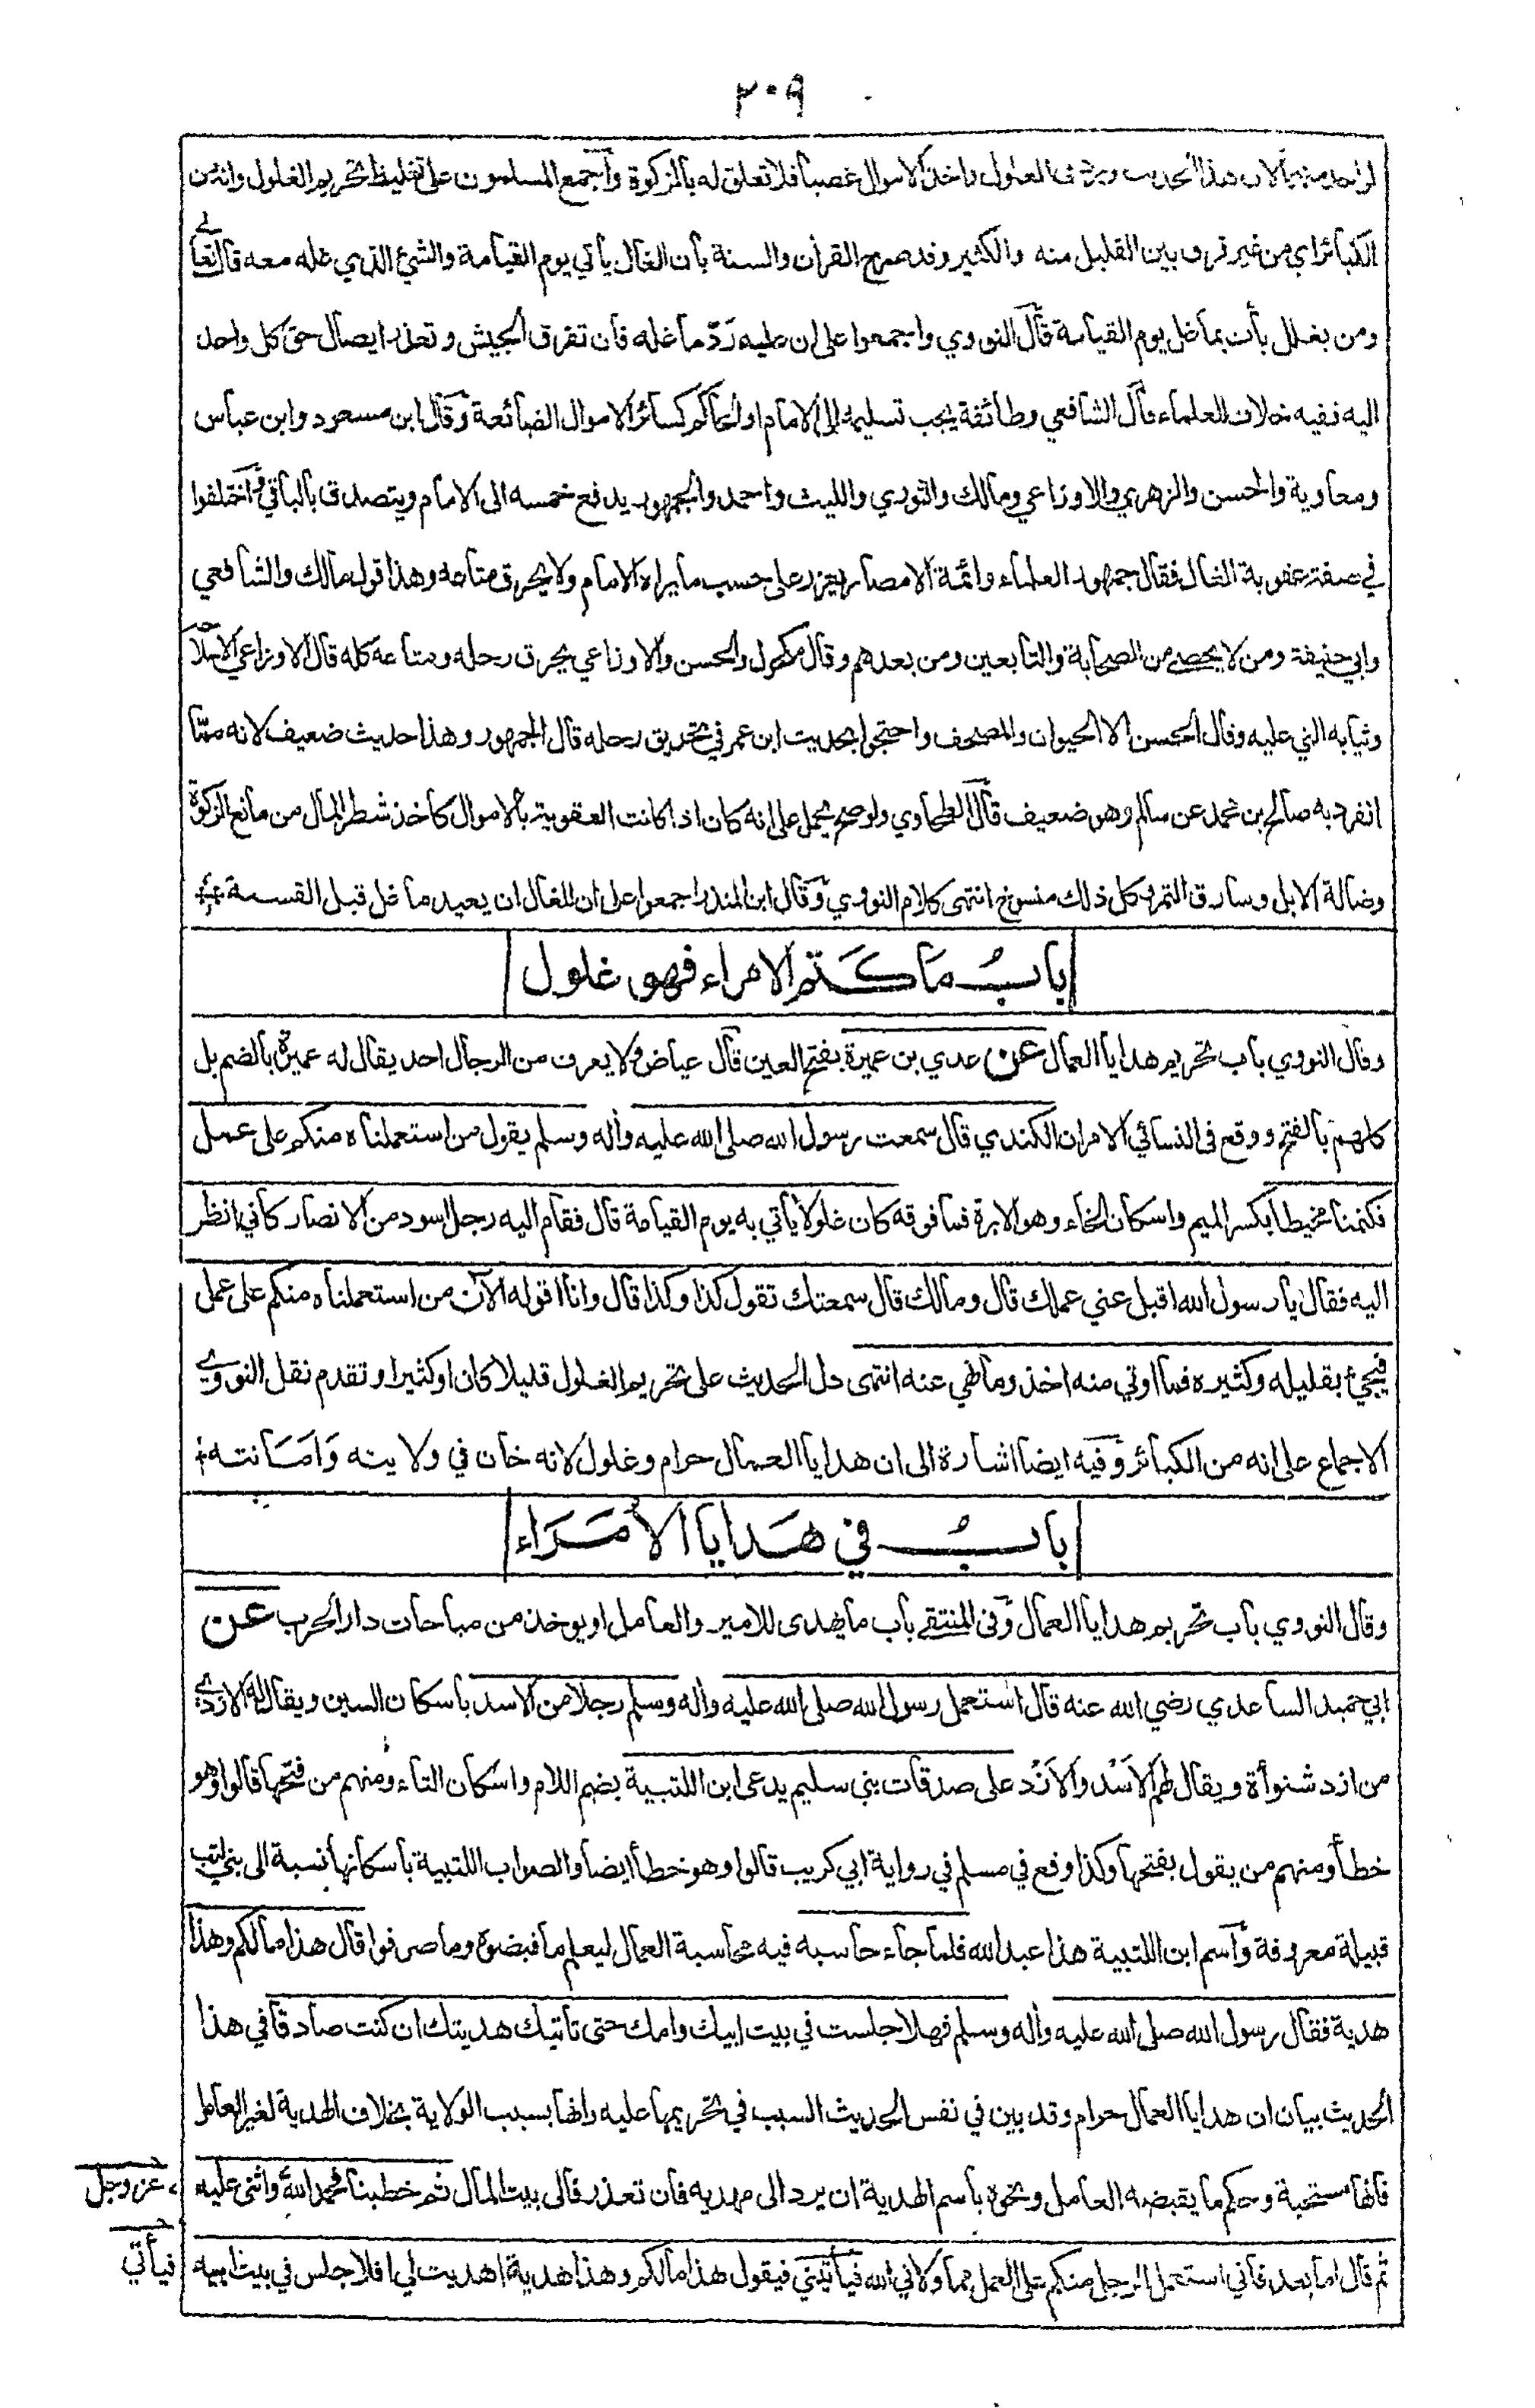 ٢٠٩
لان هذا الحديث ورد في الغلول واخذ الاموال غصبا فلا تعلق له بالزكوة واجمع المسلمون على تغليظ تحريم الغلول وانه من
الكبائر اي من غير فرق بين القليل منه والكثير وقد صرح القرأن والسنة بأن الغال يأتي يوم القيامة والشئ الذي غله معه قال تعالى
ومن يغلل يأت بما غل يوم القيامة قال النووي واجمعوا على ان عليه رَدّ ما غله فان تفرق الجيش وتعذر ايصال حق كل واحد
اليه ففيه خلاف للعلماء قال الشافعي وطائفة يجب تسليمه الى الامام او الحاكم كسائر الاموال الضائعة وقال ابن مسعود وابن عباس
ومعاوية والحسن والزهري والاوزاعي ومالك والثوري والليث واحمد والجمهور يدفع خمسه الى الامام ويتصدق بالباقي واختلفوا
في صفة عقوبة الغال فقال جمهور العلماء وائمة الامصار يعزر على حسب ما يراه الامام ولا يحرق متاعه وهذا قول مالك والشافعي
وابي حنيفة ومن لا يحصى من الصحابة والتابعين ومن بعدهم وقال مكحول والحسن والاوزاعي يحرق رحله ومتاعه كله قال الاوزاعي الا سلاحه
وثيابه التي عليه وقال الحسن الا الحيوان والمصحف واحتجوا بحديث ابن عمر في تحريق رحله قال الجمهور وهذا حديث ضعيف لانه ممّا
انفرد به صالح بن محمد عن سالم وهو ضعيف قال الطحاوي ولو صح يحمل على انه كان اذ كانت العقوبة بالاموال كأخذ شطر المال من مانع الزكوة
وضالة الابل وسارق التمر وكل ذلك منسوخ انتهى كلام النووي وقال ابن المنذر اجمعوا على ان للغال ان يعيد ما غل قبل القسمة
بابُ مَا كَتَم الامراء فهو غلول
وقال النووي باب تحريم هدايا العمال عن عدي بن عميرة بفتح العين قال عياض ولا يعرف من الرجال احد يقال له عميرة بالضم بل
كلهم بالفتح ووقع في النسائي الامران الكندي قال سمعت رسول الله صلى الله عليه وأله وسلم يقول من استعملناه منكم على عمل
فكتمنا مخيطا بكسر الميم واسكان الخاء وهو الابرة فما فوقه كان غلولا يأتي به يوم القيامة قال فقام اليه رجل اسود من الانصار كأني انظر
اليه فقال يا رسول الله اقبل عني عملك قال ومالك قال سمعتك تقول كذا وكذا قال وانا اقوله الآن من استعملناه منكم على عمل
فيجئ بقليله وكثيره فما اوتي منه اخذ وما نهي عنه انتهى دل الحديث على تحريم الغلول قليلا كان او كثيرا وتقدم نقل النووي
الاجماع على انه من الكبائر وفيه ايضا اشارة الى ان هدايا العمال حرام وغلول لانه خان في ولايته وَامَانته
بابُ في هَدايا الأمَرَاء
وقال النووي باب تحريم هدايا العمال وفي المنتقى باب ما يهدى للامير والعامل او يوخذ من مباحات دار الحرب عن
ابي حميد الساعدي رضي الله عنه قال استعمل رسول الله صلى الله عليه وأله وسلم رجلا من الاسد باسكان السين ويقال له الازدي
من ازد شنوأة ويقال لهم الاَسْد والاَزْد على صدقات بني سليم يدعى ابن اللتبية بضم اللام واسكان التاء ومنهم من فتحها قالوا وهو
خطأ ومنهم من يقول بفتحها وكذا وقع في مسلم في رواية ابي كريب قالوا وهو خطأ ايضا والصواب اللتبية باسكانها نسبة الى بني لتب
قبيلة معروفة واسم ابن اللتبية هذا عبد الله فلما جاء حاسبه فيه محاسبة العمال ليعلم ما قبضوه وما صرفوا قال هذا مالكم وهذا
هدية فقال رسول الله صلى الله عليه وأله وسلم فهلا جلست في بيت ابيك وامك حتى تأتيك هديتك ان كنت صادقا في هذا
الحديث بيان ان هدايا العمال حرام وقد بين في نفس الحديث السبب في تحريمها عليه وانها بسبب الولاية بخلاف الهدية لغير العامل
فانها مستحبة وحكم ما يقبضه العامل ونحوه باسم الهدية ان يرد الى مهديه فان تعذر فالى بيت المال ثم خطبنا فحمد الله واثنى عليه
عز وجل
ثم قال اما بعد فاني استعمل الرجل منكم على العمل مما ولاني الله فيأتيني فيقول هذا مالكم وهذا هدية اهديت لي افلا جلس في بيت ابيه
فيأتي